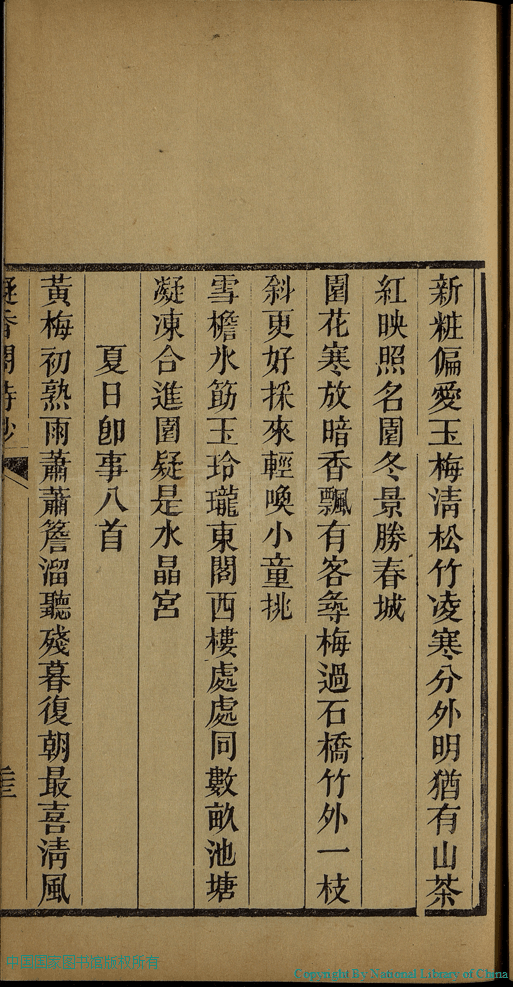 新粧偏愛玉梅淸松竹凌寒分外明猶有山茶
紅映照名園冬景勝春城
園花寒放暗香飄有客尋梅過石橋竹外一枝
斜更好採來輕喚小童挑
雪檐氷筯玉玲瓏東閣西樓處處同數畝池塘
凝凍合進園疑是水晶宮
夏日卽事八首
黃梅初熟雨蕭蕭簷溜聽殘暮復朝最喜淸風
凝香閣詩鈔
中国国家图书馆版权所有
Copyright By National Library of China